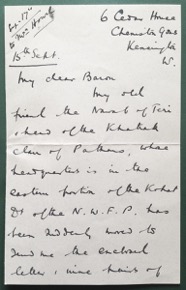 6 Cedar House
Kensington
W.
15th Sept.
My dear Baron
My old
friend the Nawab of Teri
& head of the Khattak
clan of Pathans, whose
headquarters is in the
eastern portion of the Kohat
Dt of the N.W.F.P. has
been suddenly moved to
send me the enclosed
letter & nine hairs of